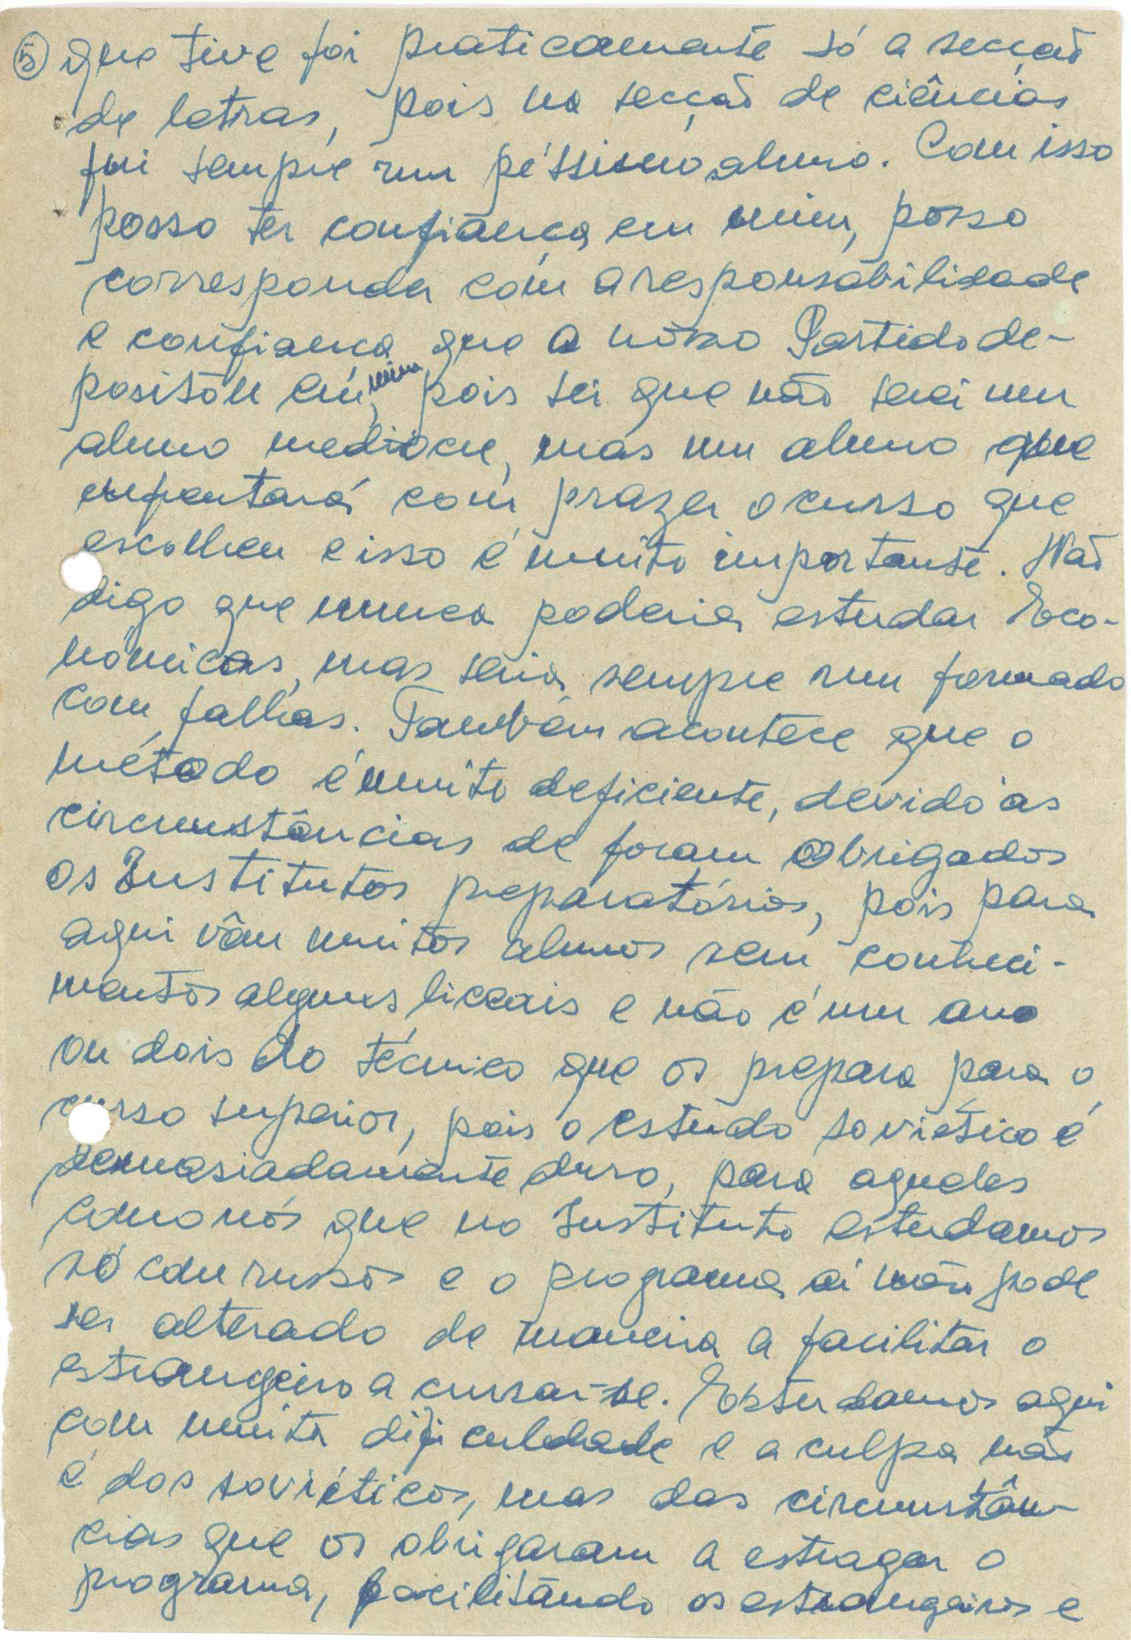 ⑤ que tive foi praticamente só a secção
de letras, pois na secção de ciências
fui sempre um péssimo aluno. Com isso
posso ter confiança em mim, posso
corresponder com a responsabilidade
e confiança que o nosso Partido de-
positou em mim, pois sei que não serei um
aluno mediocre, mas um aluno que
enfrentará com prazer o curso que
escolheu e isso é muito importante. Não
digo que nunca poderia estudar Eco-
nómicas, mas seria sempre um formado
com falhas. Também acontece que o
método é muito deficiente, devido às
circunstâncias de foram obrigados
os Institutos preparatórios, pois para
aqui vâm muitos alunos sem conheci-
mentos alguns liceais e não é um ano
ou dois do técnico que os prepara para o
curso superior, pois o estudo soviético é
demasiadamente duro, para aqueles
como nós que no Instituto estudamos
só com russos e o programa aí não pode
ser alterado de maneira a facilitar o
estrangeiro a cursar-se. Estudamos aqui
com muita dificuldade e a culpa não
é dos soviéticos, mas das circunstân-
cias que os obrigaram a estragar o
programa, facilitando os estrangeiros e